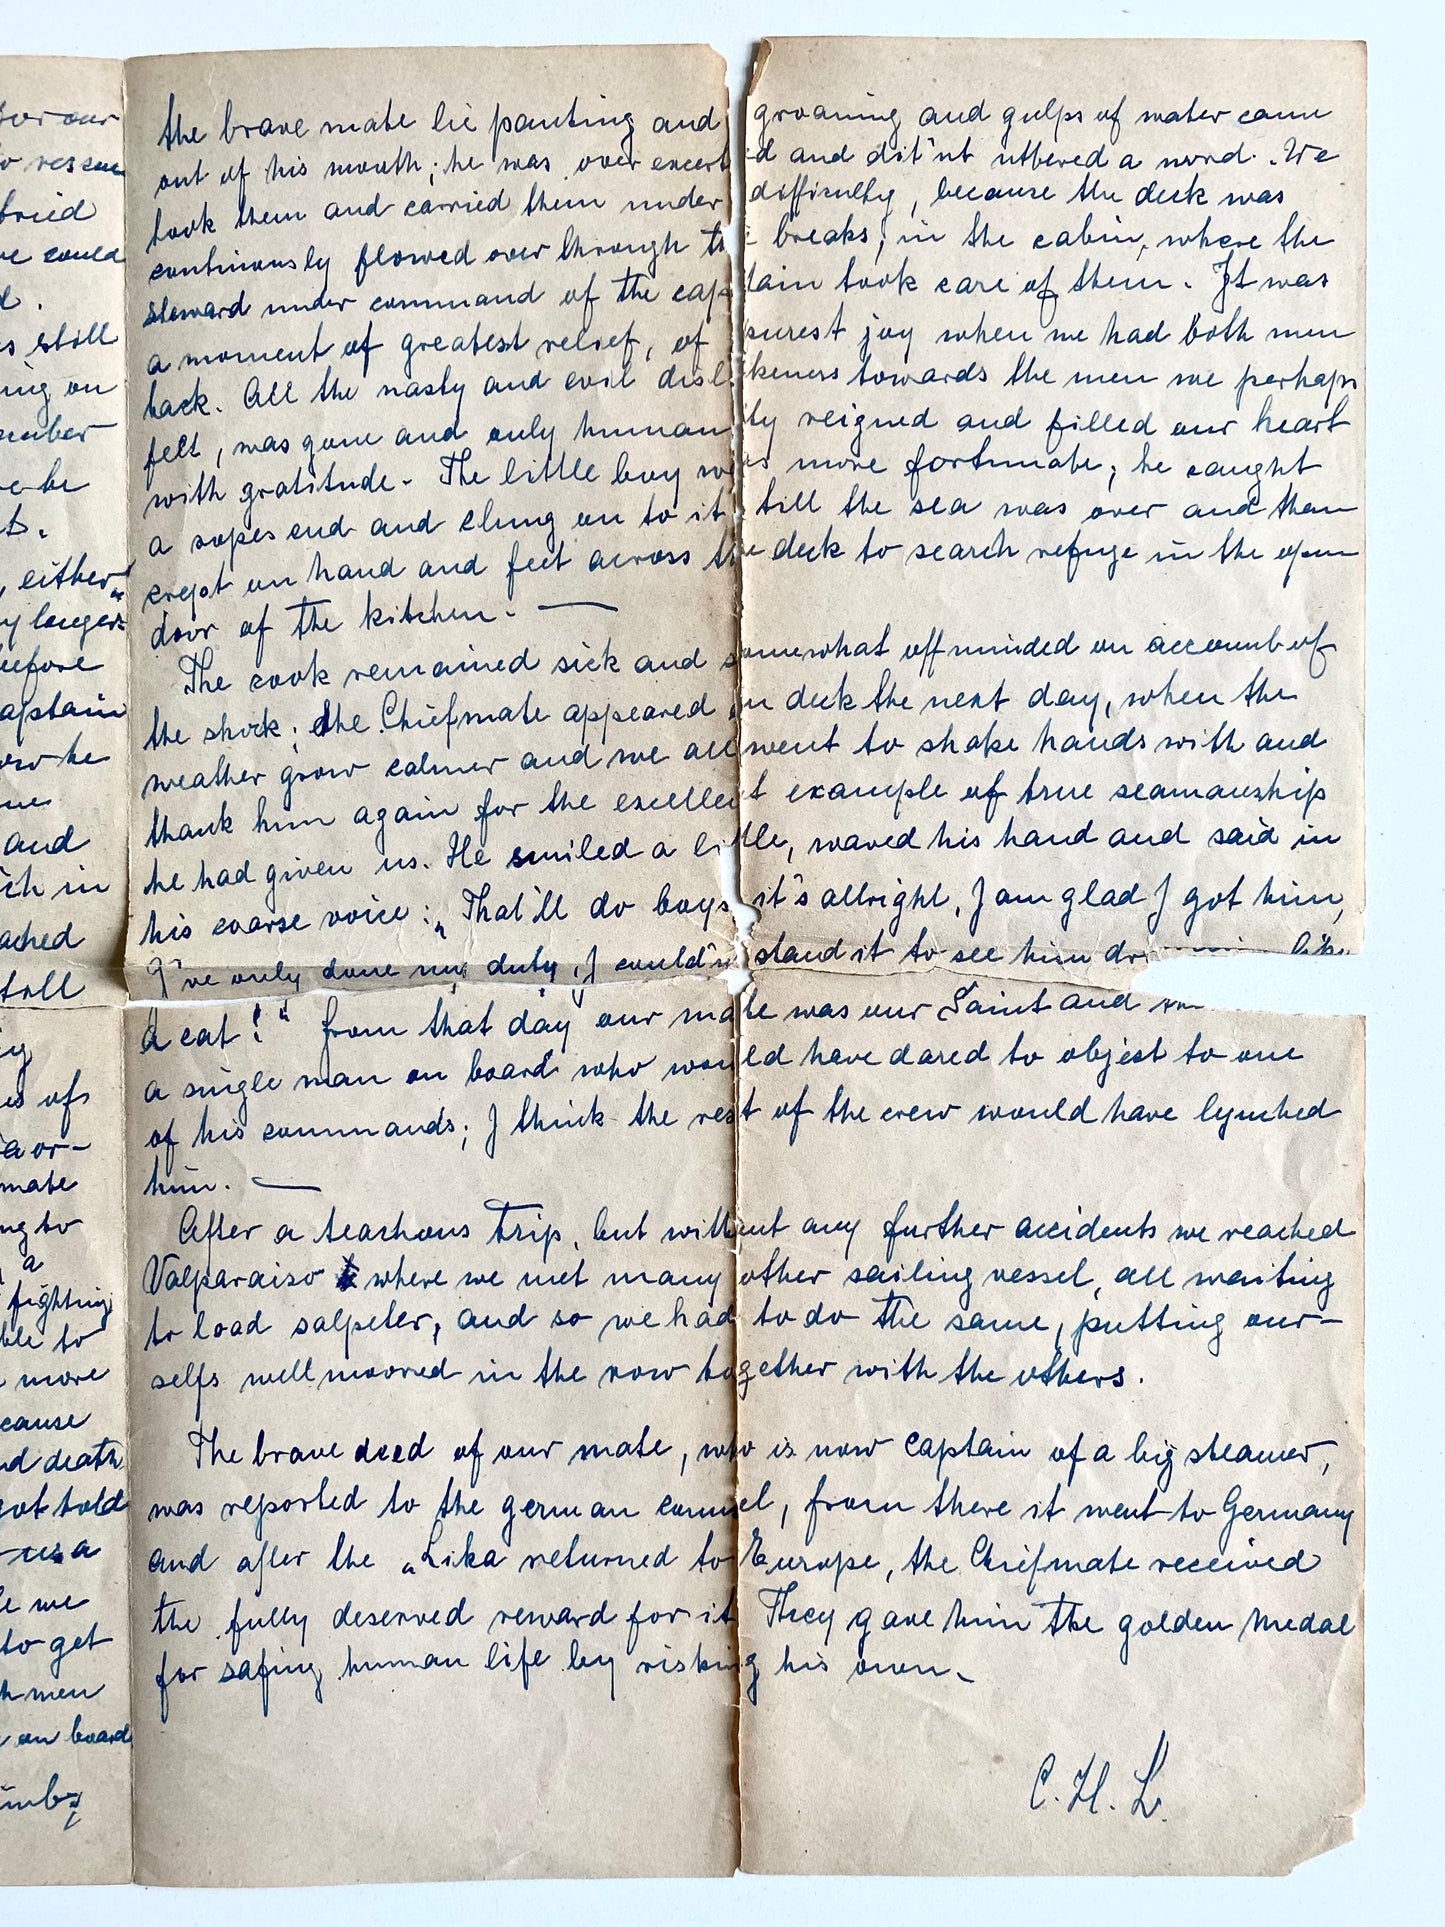 the brave mate lie panting and groaning and gulps of water came
out of his mouth; he was over exerted and dit'nt uttered a word. We
took them and carried them under difficulty, because the deck was
continously flowed over through the breaks, in the cabin, where the
steward under command of the captain took care of them. It was
a moment of greatest relief, of purest joy when we had both men
back. All the nasty and evil dislikeness towards the men we perhaps
felt, was gone and only humanity reigned and filled our heart
with gratitude. The little boy was more fortunate; he caught
a ropes end and clung on to it till the sea was over and then
crept on hand and feet across the deck to search refuge in the open
door of the kitchen. —
The cook remained sick and somewhat off minded on account of
the shock; the Chiefmate appeared on deck the next day, when the
weather grow calmer and we all went to shake hands with and
thank him again for the excellent example of true seamanship
he had given us. He smiled a little, waved his hand and said in
his coarse voice: „That'll do boys it's allright, I am glad I got him,
I've only done my duty, I could'nt stand it to see him like
a cat!" from that day our mate was our Saint and
a single man on board who would have dared to object to one
of his commands; I think the rest of the crew would have lynched
him. —
After a teachous trip, but without any further accidents we reached
Valparaiso where we met many other sailing vessel, all waiting
to load salpeter, and so we had to do the same, putting our-
selfs well moored in the row together with the others.
The brave deed of our mate, who is now captain of a big steamer,
was reported to the german consul, from there it went to Germany
and after the „Lika returned to Europe, the Chiefmate received
the fully deserved reward for it They gave him the golden medal
for safing human life by risking his own.
C. H. L.
over our
to rescue
tried
we could
still
on
be
either
longer
before
captain
he
and
in
still
of
a or-
mate
to
a
fighting
to
more
death
got told
we
to get
men
on board